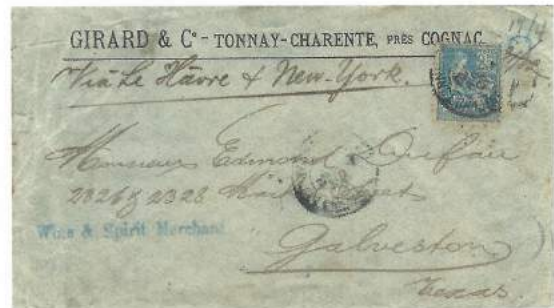 GIRARD & Co - TONNAY-CHARENTE, PRÈS COGNAC.
Via Le Havre & New-York.
Monsieur Edmond
2326 & 2328
Wine & Spirit Merchant
Galveston
Texas.